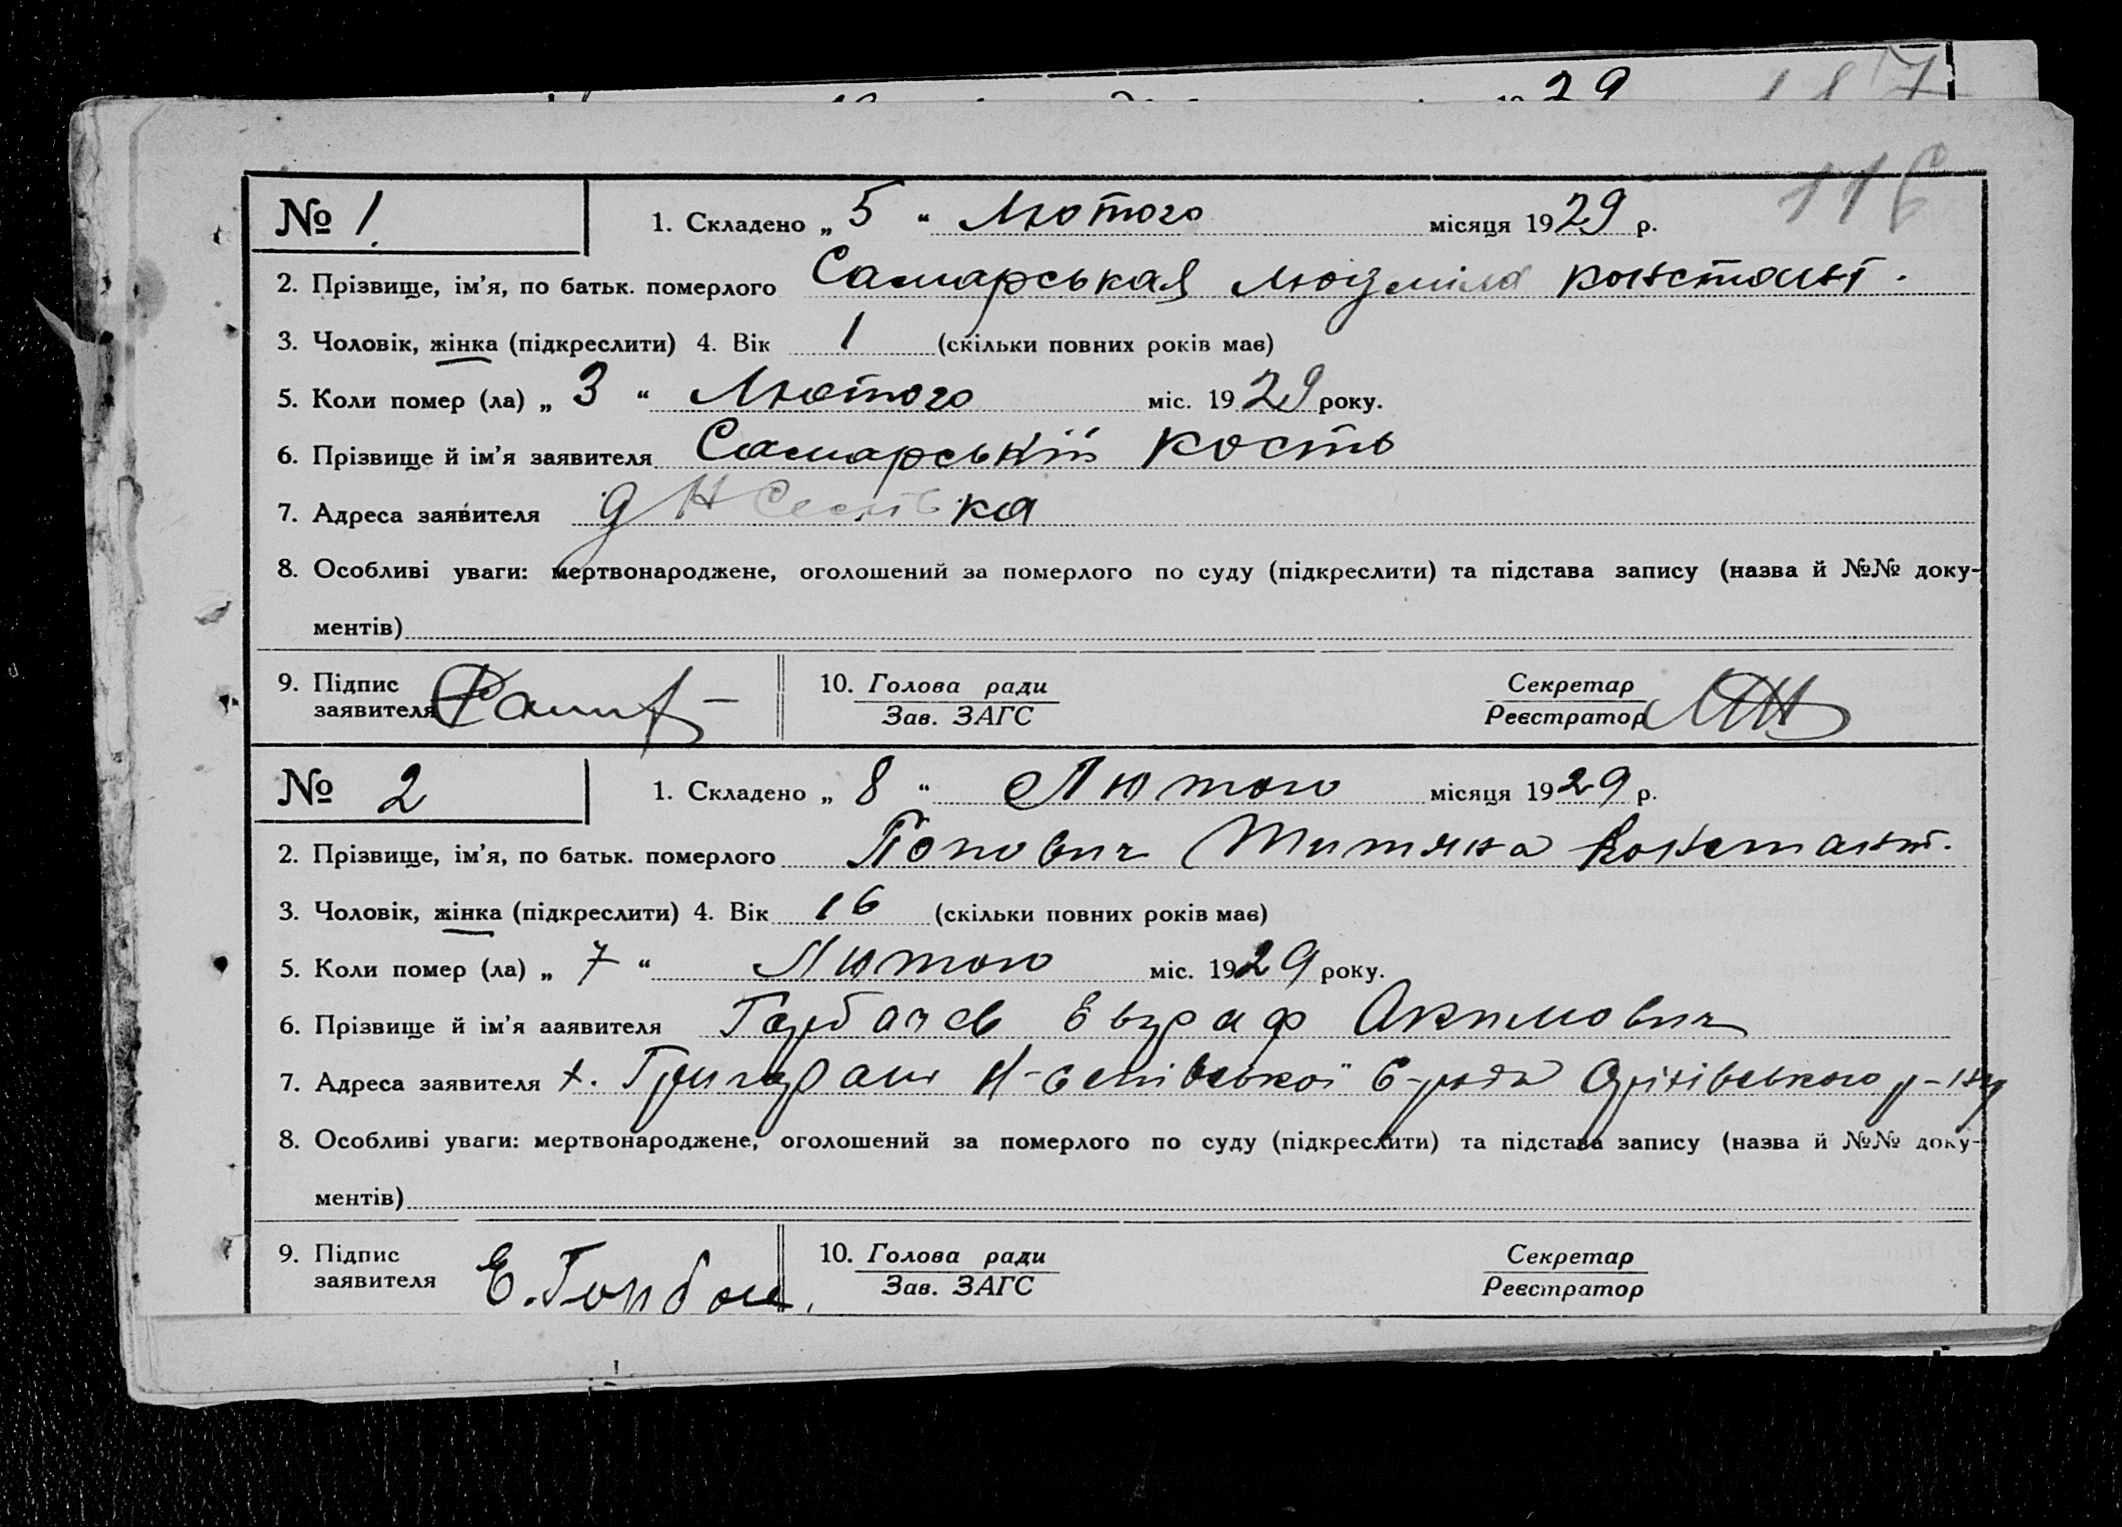 29
117
116
№ 1. 1. Складено „ 5 “ Лютого місяця 1929 р.
2. Прізвище, ім’я, по батьк. померлого Самарськая Людміла Констант.
3. Чоловік, жінка (підкреслити) 4. Вік 1 (скільки повних років має)
5. Коли помер (ла) „ 3 “ Лютого міс. 1929 року.
6. Прізвище й ім’я заявителя Самарській Кость
7. Адреса заявителя
8. Особливі уваги: мертвонароджене, оголошений за померлого по суду (підкреслити) та підстава запису (назва й №№ доку-
ментів)
9. Підпис заявителя 10. Голова ради Секретар
Зав. ЗАГС Реєстратор
№ 2 1. Складено „ 8 “ Лютого місяця 1929 р.
2. Прізвище, ім’я, по батьк. померлого Попович Титяна Констант.
3. Чоловік, жінка (підкреслити) 4. Вік 16 (скільки повних років має)
5. Коли помер (ла) „ 7 “ Лютого міс. 1929 року.
6. Прізвище й ім’я ааявителя Горбачев Евграф Акимович
7. Адреса заявителя х. Н- С-ради Оріхівського р-ну
8. Особливі уваги: мертвонароджене, оголошений за померлого по суду (підкреслити) та підстава запису (назва й №№ доку-
ментів)
9. Підпис заявителя Е. Горбач 10. Голова ради Секретар
Зав. ЗАГС Реєстратор